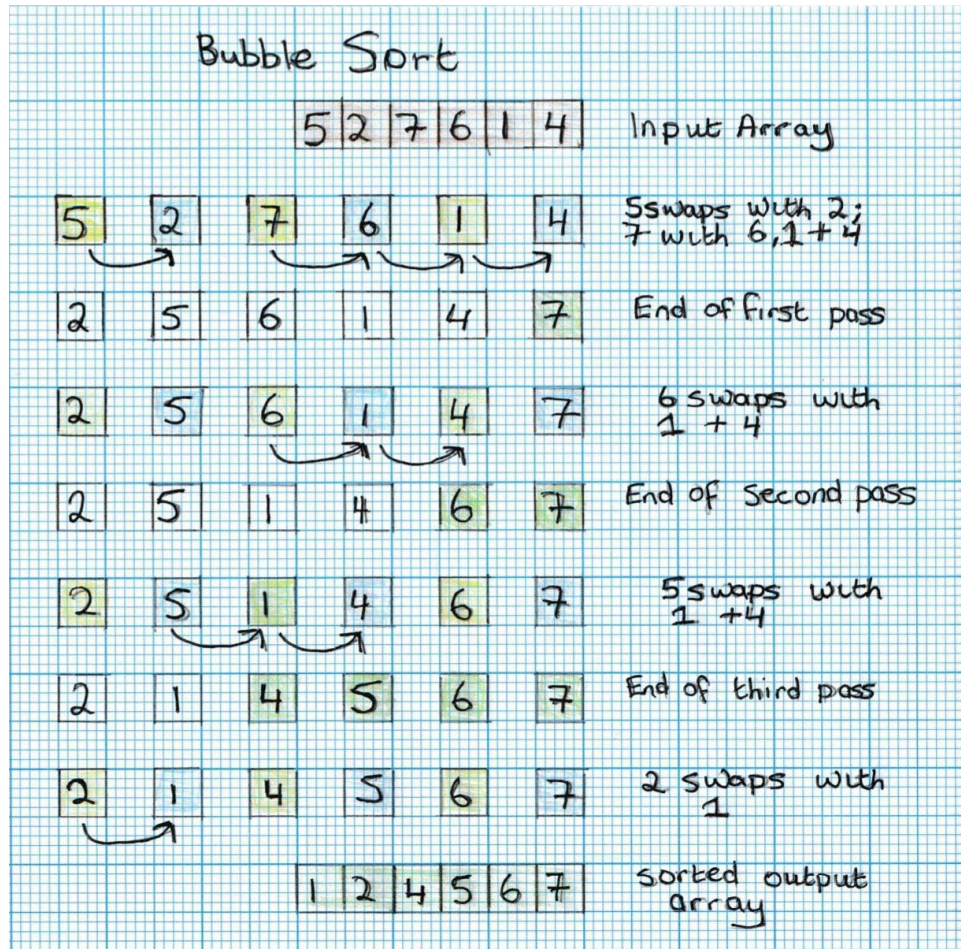 Bubble Sort
5 2 7 6 1 4 Input Array
5 2 7 6 1 4 5 swaps with 2;
7 with 6, 1 + 4
2 5 6 1 4 7 End of first pass
2 5 6 1 4 7 6 swaps with
1 + 4
2 5 1 4 6 7 End of Second pass
2 5 1 4 6 7 5 swaps with
1 + 4
2 1 4 5 6 7 End of third pass
2 1 4 5 6 7 2 swaps with
1
1 2 4 5 6 7 sorted output
array